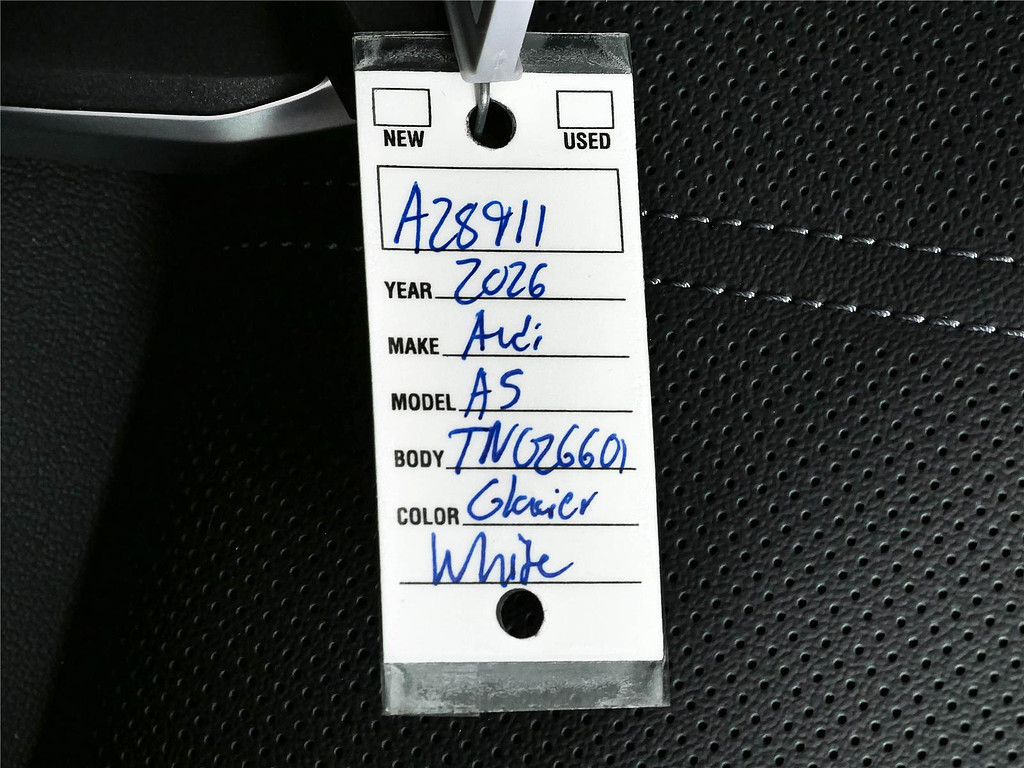 NEW USED
A28911
YEAR 2026
MAKE Audi
MODEL A5
BODY TN026601
COLOR Glacier
White